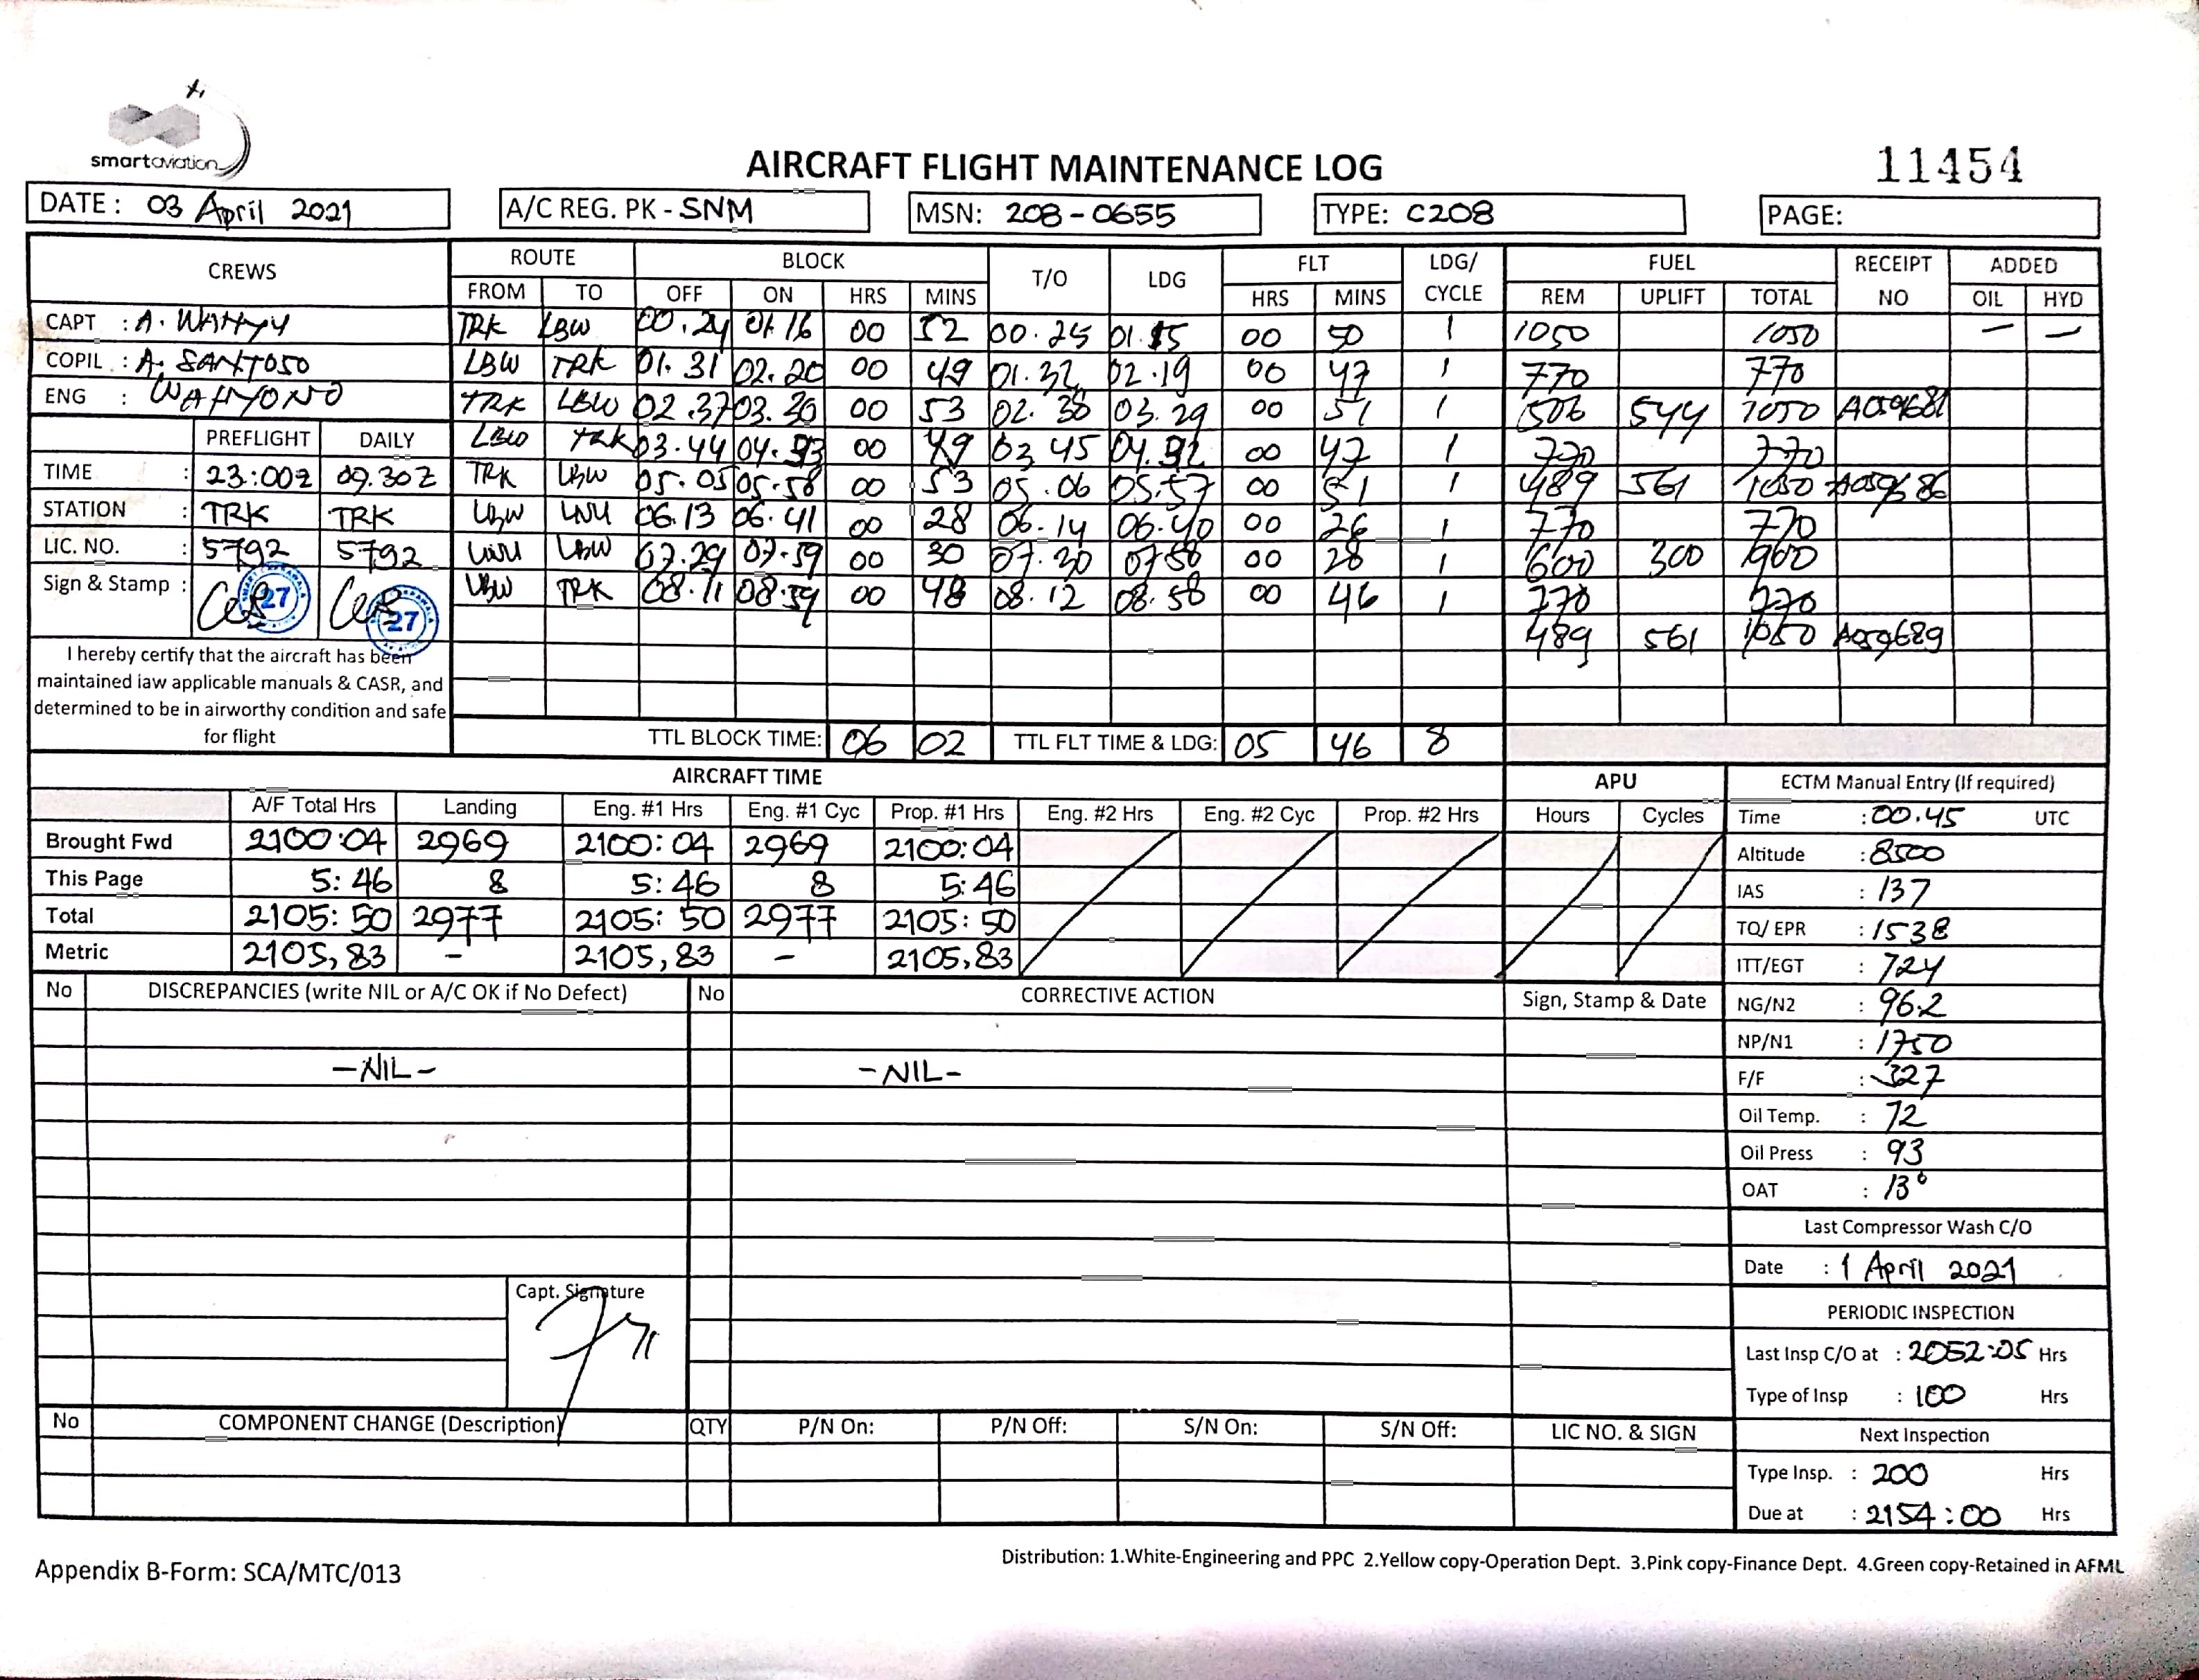 smartaviation
AIRCRAFT FLIGHT MAINTENANCE LOG
11454
DATE: 03 April 2021 A/C REG. PK - SNM MSN: 208-0655 TYPE: C208 PAGE:
CREWS ROUTE BLOCK T/O LDG FLT LDG/CYCLE FUEL RECEIPT NO ADDED
FROM TO OFF ON HRS MINS HRS MINS REM UPLIFT TOTAL OIL HYD
CAPT : A. WAHYU TRK LBW 00.24 01.16 00 52 00.25 01.15 00 50 1 1050 1050 — —
COPIL : A. SANTOSO LBW TRK 01.31 02.20 00 49 01.32 02.19 00 47 1 770 770
ENG : WAHYONO TRK LBW 02.37 03.30 00 53 02.38 03.29 00 51 1 506 544 1050 A059681
PREFLIGHT DAILY LBW TRK 03.44 04.33 00 49 03.45 04.32 00 47 1 770 770
TIME : 23:00z 09.30z TRK LBW 05.05 05.58 00 53 05.06 05.57 00 51 1 489 561 1050 A059686
STATION : TRK TRK LBW 06.13 06.41 00 28 06.14 06.40 00 26 1 770 770
LIC. NO. : 5792 5792 LBW 07.29 07.59 00 30 07.30 07.58 00 28 1 600 300 900
Sign & Stamp : 27 27 LBW TRK 08.11 08.59 00 48 08.12 08.58 00 46 1 770 770
489 561 1050 A059689
I hereby certify that the aircraft has been
maintained iaw applicable manuals & CASR, and
determined to be in airworthy condition and safe
for flight
TTL BLOCK TIME: 06 02 TTL FLT TIME & LDG: 05 46 8
AIRCRAFT TIME APU ECTM Manual Entry (If required)
A/F Total Hrs Landing Eng. #1 Hrs Eng. #1 Cyc Prop. #1 Hrs Eng. #2 Hrs Eng. #2 Cyc Prop. #2 Hrs Hours Cycles Time : 00.45 UTC
Brought Fwd 2100:04 2969 2100:04 2969 2100:04 Altitude : 8500
This Page 5:46 8 5:46 8 5:46 IAS : 137
Total 2105:50 2977 2105:50 2977 2105:50 TQ/ EPR : 1538
Metric 2105,83 - 2105,83 - 2105,83 ITT/EGT : 724
No DISCREPANCIES (write NIL or A/C OK if No Defect) No CORRECTIVE ACTION Sign, Stamp & Date NG/N2 : 96.2
NP/N1 : 1750
-NIL- -NIL- F/F : 327
Oil Temp. : 72
Oil Press : 93
OAT : 13°
Last Compressor Wash C/O
Date : 1 April 2021
Capt. Signature
PERIODIC INSPECTION
Last Insp C/O at : 2052:05 Hrs
Type of Insp : 100 Hrs
No COMPONENT CHANGE (Description) QTY P/N On: P/N Off: S/N On: S/N Off: LIC NO. & SIGN Next Inspection
Type Insp. : 200 Hrs
Due at : 2154:00 Hrs
Appendix B-Form: SCA/MTC/013
Distribution: 1.White-Engineering and PPC 2.Yellow copy-Operation Dept. 3.Pink copy-Finance Dept. 4.Green copy-Retained in AFML